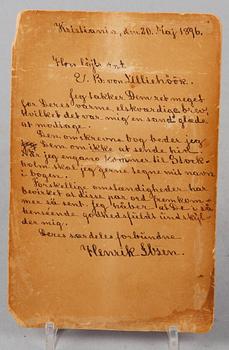 Kristiania, den 20. Maj 1896.
Hon löjtnant
C. B. von Lilliehöök.
Jeg takker Dem ret meget
for Deres varme, elskværdige brev
hvilket det var mig en sand glæde
at modtage.
Den omskrevne bog beder jeg
Dem om ikke at sende hid.
Når jeg engang kommer til Stock-
holm skal jeg gerne tegne mit navn
i bogen.
Forskellige omstændigheder har
bevirket at disse par ord fremkom-
mer så sent. Jeg håber at De i så
henseende godhedsfuldt undskyl-
der mig.
Deres særdeles forbundne
Henrik Ibsen.